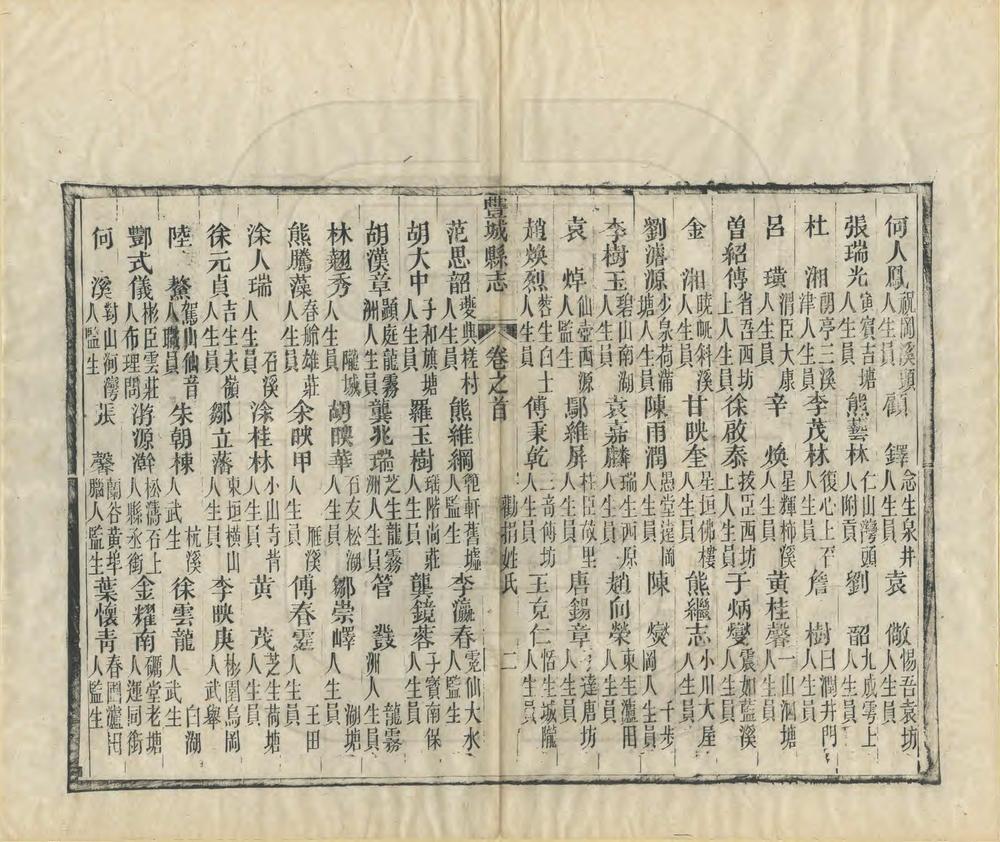 何人鳳 祝岡溪頭人生員 顧鐸 念生泉井人生員 袁儆 惕吾袁坊人生員
張瑞光 寅賓吉塘人生員 熊藝林 仁山灣頭人附貢 劉韶 九成雩上人生員
杜湘 朗亭三溪津人生員 李茂林 復心上莊人生員 詹樹 曰潤井門人生員
呂璜 渭臣大康人生員 辛煥 星輝柿溪人生員 黃桂馨 一山泗塘人生員
曾紹傳 省吾西坊上人生員 徐啟泰 技臣西坊上人生員 于炳燮 震如藍溪人生員
金湘 斜溪人生員 甘映奎 星垣佛樓人生員 熊繼志 小川大屋人生員
劉濬源 少泉荷蒲塘人生員 陳雨潤 愚堂遠岡人生員 陳燮 千步岡人生員
李樹玉 碧山南湖人生員 袁嘉麟 瑞生西原人生員 趙向榮 東生瀘田人生員
袁焯 仙壺西源人監生 鄢維屏 杜臣故里人生員 唐錫章 達唐坊人生員
趙煥烈 白土人生員 傅秉乾 三奇傅坊人生員 王克仁 恬生城隴人生員
豐城縣志 卷之首 勸捐姓氏 二
范思韶 夔典槎村人生員 熊維綱 範軒舊墟人監生 李瀛春 霓仙大水人監生
胡大中 子和旗塘人生員 羅玉樹 瑱階尚莊人生員 龔鏡蓉 子賓南保人生員
胡漢章 顯庭龍霧洲人生員 龔兆瑞 芝生龍霧洲人生員 管發 龍霧洲人生員
林翹秀 隴城人生員 胡暎華 石友松湖人生員 鄒崇嶧 湖塘人生員
熊騰藻 春舫雄莊人生員 余映甲 雁溪人生員 傅春霆 王田人生員
涂人瑞 石溪人生員 涂桂林 小山寺背人生員 黃茂 芝生荷塘人生員
徐元貞 吉生夫嶺人生員 鄒立藩 東垣橫山人生員 李映庚 彬園烏岡人武舉
陸鰲 駕山仙音人職員 朱朝棟 杭溪人武生 徐雲龍 白湖人武生
酆式儀 彬臣雲莊人布理問 淯源濣 松濤石上人縣丞銜 金耀南 礪堂老塘人運同銜
何溪 對山河灣人監生 張馨 蘭谷黃埠腦人監生 葉懷青 春圃瀘田人監生